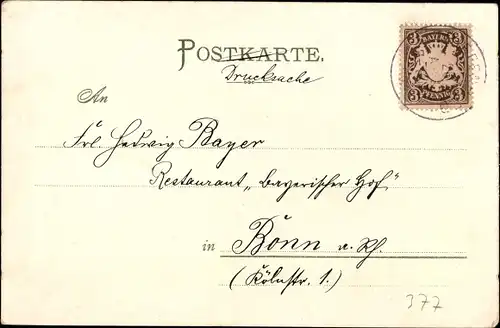 POSTKARTE.
Drucksache
3 BAYERN 3
3 PFENNIG 3
An
Frl. Hedwig Bayer
Restaurant „Bayerischer Hof"
in Bonn a. Rh.
(Kölnstr. 1.)
377